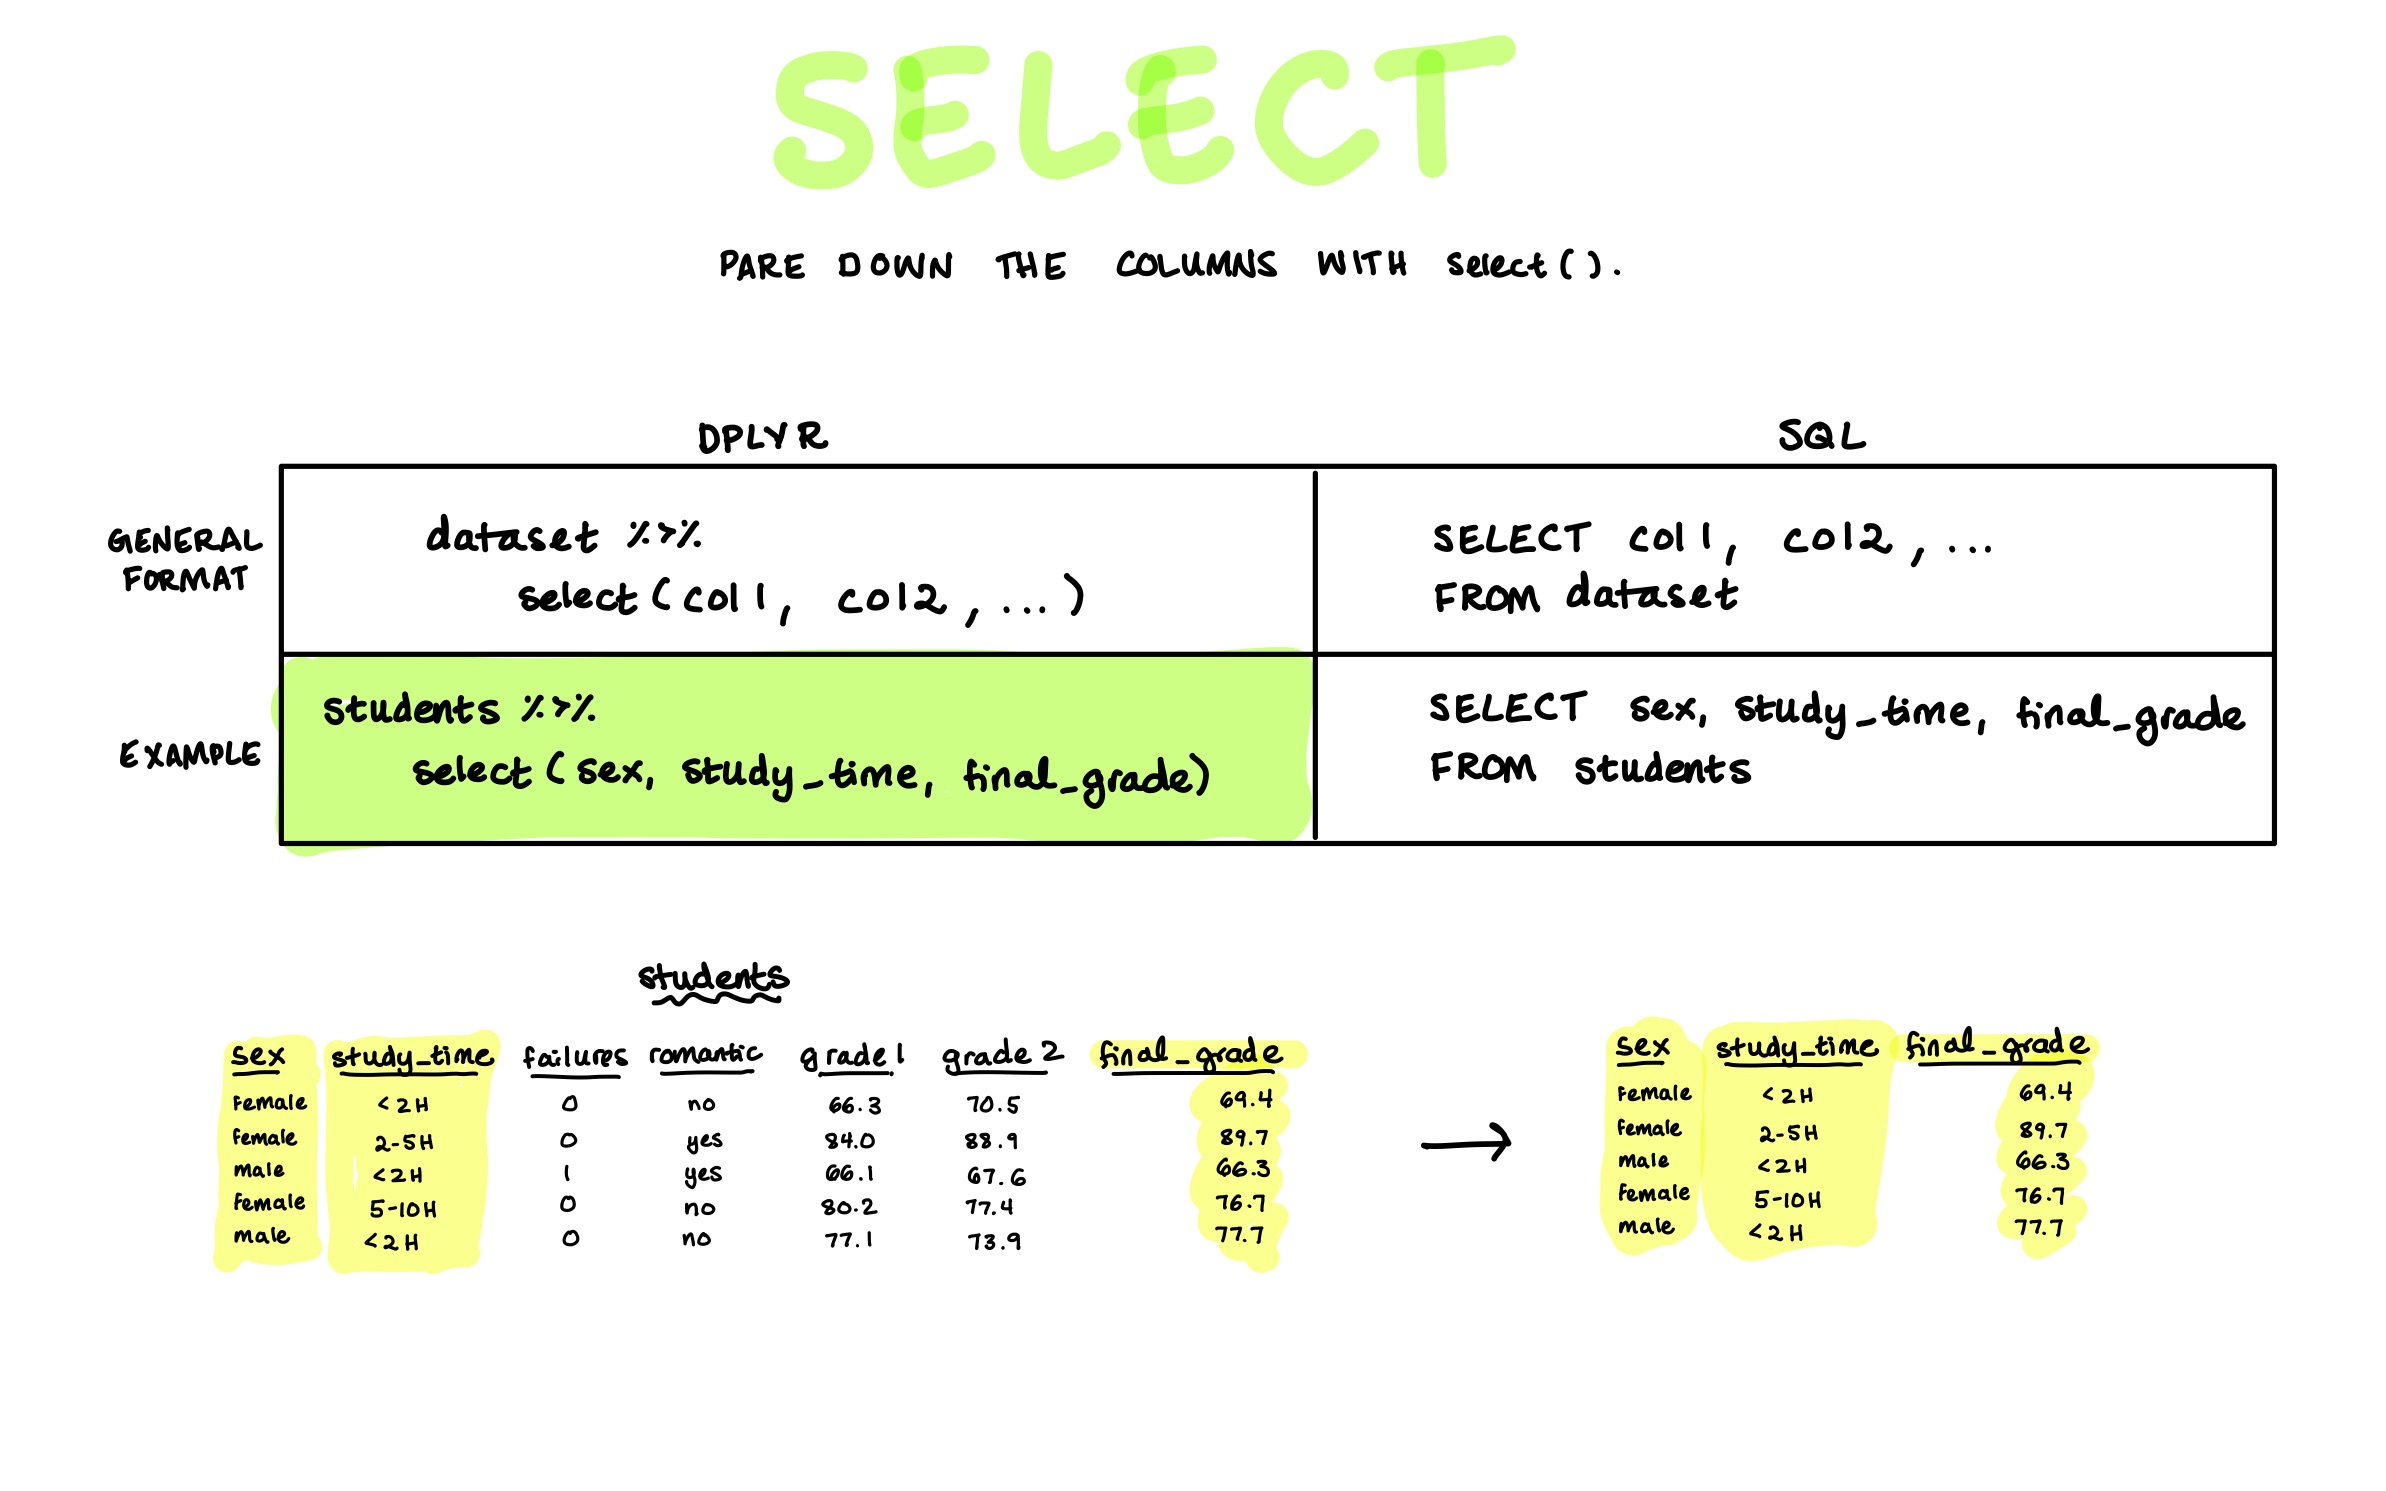 SELECT
PARE DOWN THE COLUMNS WITH select().
DPLYR SQL
GENERAL FORMAT
dataset %>%
select(col1, col2, ...)
SELECT col1, col2, ...
FROM dataset
EXAMPLE
students %>%
select(sex, study_time, final_grade)
SELECT sex, study_time, final_grade
FROM students
students
sex study_time failures romantic grade1 grade2 final_grade
female <2H 0 no 66.3 70.5 69.4
female 2-5H 0 yes 84.0 88.9 89.7
male <2H 1 yes 66.1 67.6 66.3
female 5-10H 0 no 80.2 77.4 76.7
male <2H 0 no 77.1 73.9 77.7
→
sex study_time final_grade
female <2H 69.4
female 2-5H 89.7
male <2H 66.3
female 5-10H 76.7
male <2H 77.7